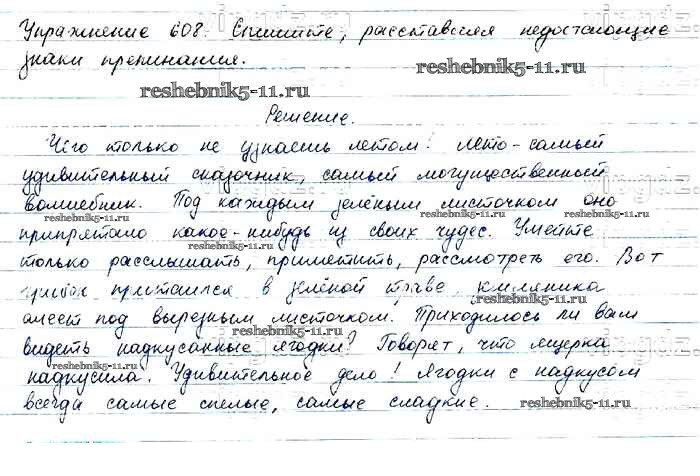 Упражнение 608. Спишите, расставляя недостающие
знаки препинания.
reshebnik5-11.ru
reshebnik5-11.ru
Решение.
Чего только не узнаешь летом! Лето-самый
удивительный сказочник, самый могущественный
волшебник. Под каждым зелёным листочком оно
reshebnik5-11.ru
reshebnik5-11.ru
припрятало какое-нибудь из своих чудес. Умейте
только расслышать, приметить, рассмотреть его. Вот
грибок притаился в зелёной траве, земляника
алеет под вырезным листочком. Приходилось ли вам
reshebnik5-11.ru
видеть надкусанные ягодки? Говорят, что ящерка
reshebnik5-11.ru
надкусила. Удивительное дело! Ягодки с надкусом
всегда самые спелые, самые сладкие.
reshebnik5-11.ru